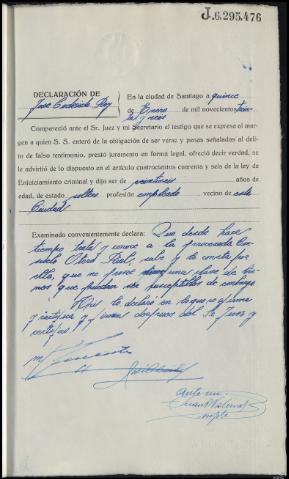 J.6.295,476
DECLARACIÓN DE
José
En la ciudad de Santiago a quince
de Enero de mil novecientos trein
ta y seis
Compareció ante el Sr. Juez y mi Secretario el testigo que se expresa al mar-
gen a quien S. S. enteró de la obligación de ser veraz y penas señaladas al deli-
to de falso testimonio, prestó juramento en forma legal, ofreció decir verdad, se
le advirtió de lo dispuesto en el artículo cuatrocientos cuarenta y seis de la ley de
Enjuiciamiento criminal y dijo ser de años de
edad, de estado soltero profesión empleado vecino de esta
Ciudad
Examinado convenientemente declara: Que desde hace
tiempo trata y conoce a la procesada Con-
suelo y le consta por
ella, que no posee clase de bie-
nes que puedan ser susceptibles de embargo
Así lo declara en la que se afirma
y ratifica y firma despues del Sr Juez y
certifico
Ante mi